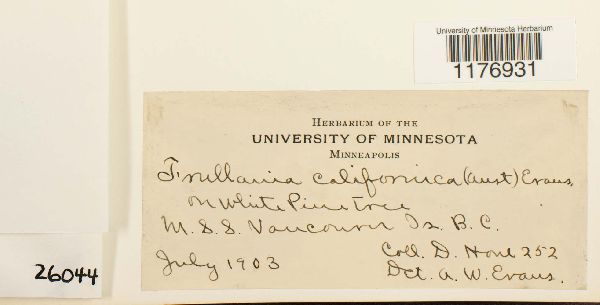 University of Minnesota Herbarium
1176931
HERBARIUM OF THE
UNIVERSITY OF MINNESOTA
MINNEAPOLIS
Frullania californica (Aust) Evans.
on White Pine tree
M.S.S. Vancouver Is. B.C.
Coll. D. Hone 252
July 1903
Det. A. W. Evans.
26044